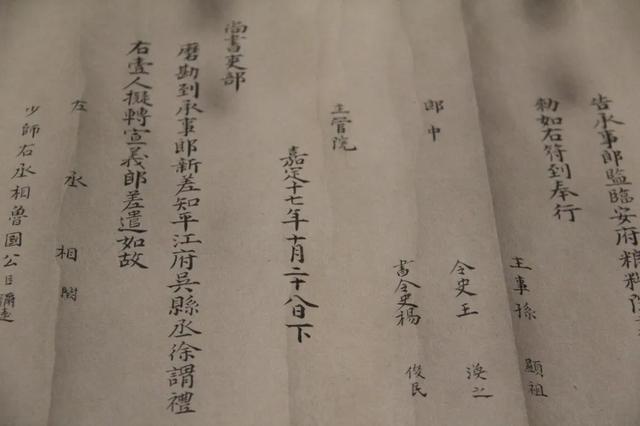 告承事郎監臨安府粮料院
勑如右符到奉行
主事孫 顯祖
令史王 渙之
郎中
書令史楊 俊民
主管院
嘉定十七年十月二十八日下
尚書吏部
磨勘到承事郎新差知平江府吳縣丞徐謂禮
右壹人擬轉宣義郎差遣如故
左丞相闕
少師右丞相魯國公臣彌遠